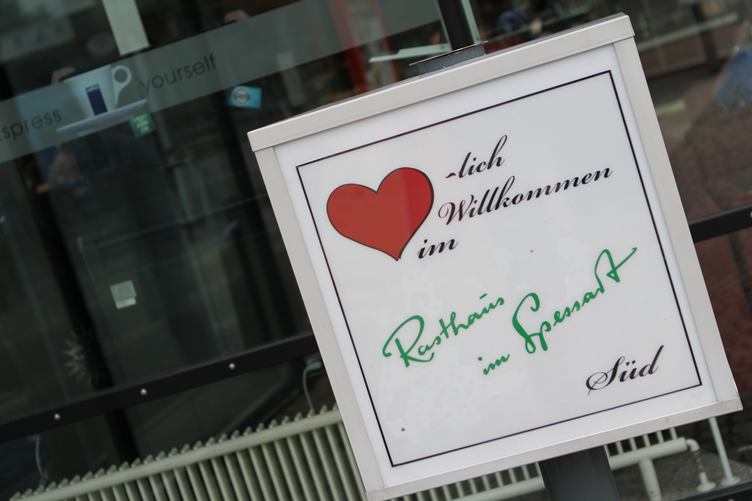 espress yourself
-lich
Willkommen
im
Rasthaus
im Spessart
Süd